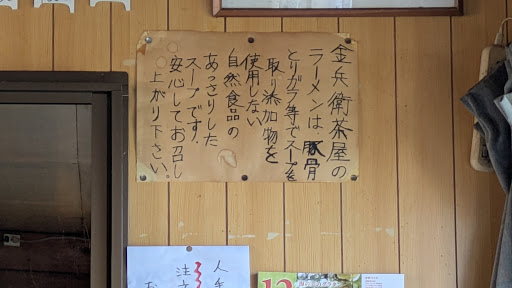 金兵衛茶屋の
ラーメンは、豚骨
とりガラ等でスープを
取り添加物を
使用しない
自然食品の
あっさりした
スープです。
安心してお召し
上がり下さい。
注文
お
12